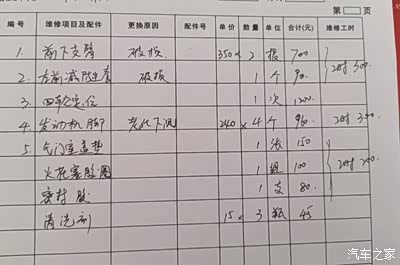 第 页
编号 维修项目及配件 更换原因 配件号 单价 数量 单位 合计(元) 维修工时
1. 前下支臂 破损 350 × 2 根 700
2. 左前减震 破损 1 个 90 2时 300
3. 四轮定位 1 次 1200
4. 发动机脚 老化下沉 240 × 4 个 960 2时 300
5. 气门室盖垫 1 张 150
火花塞胶圈 1 组 100 2时 200
密封胶 1 支 80
清洗剂 15 × 3 瓶 45
汽车之家